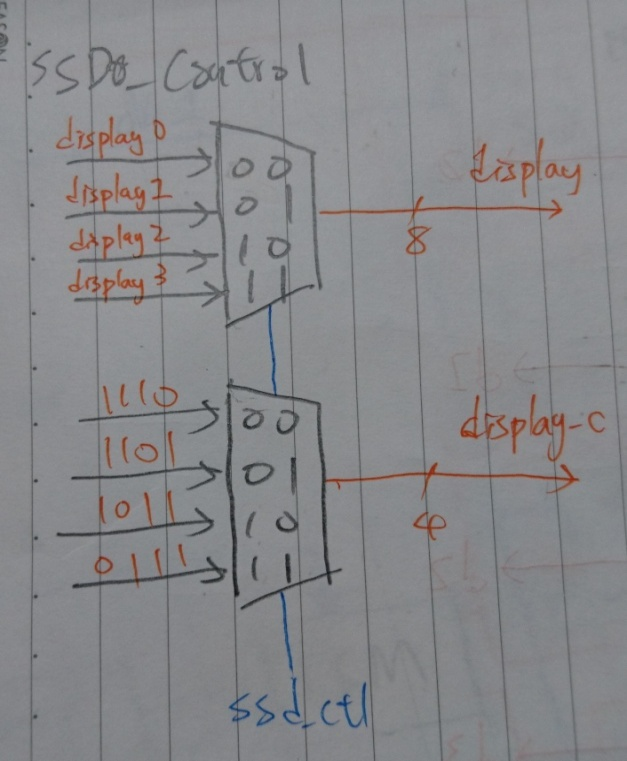 SSD_Control
display 0
display 1
display 2
display 3
0 0
0 1
1 0
1 1
display
8
1110
1101
1011
0111
0 0
0 1
1 0
1 1
display_c
4
ssd_ctl